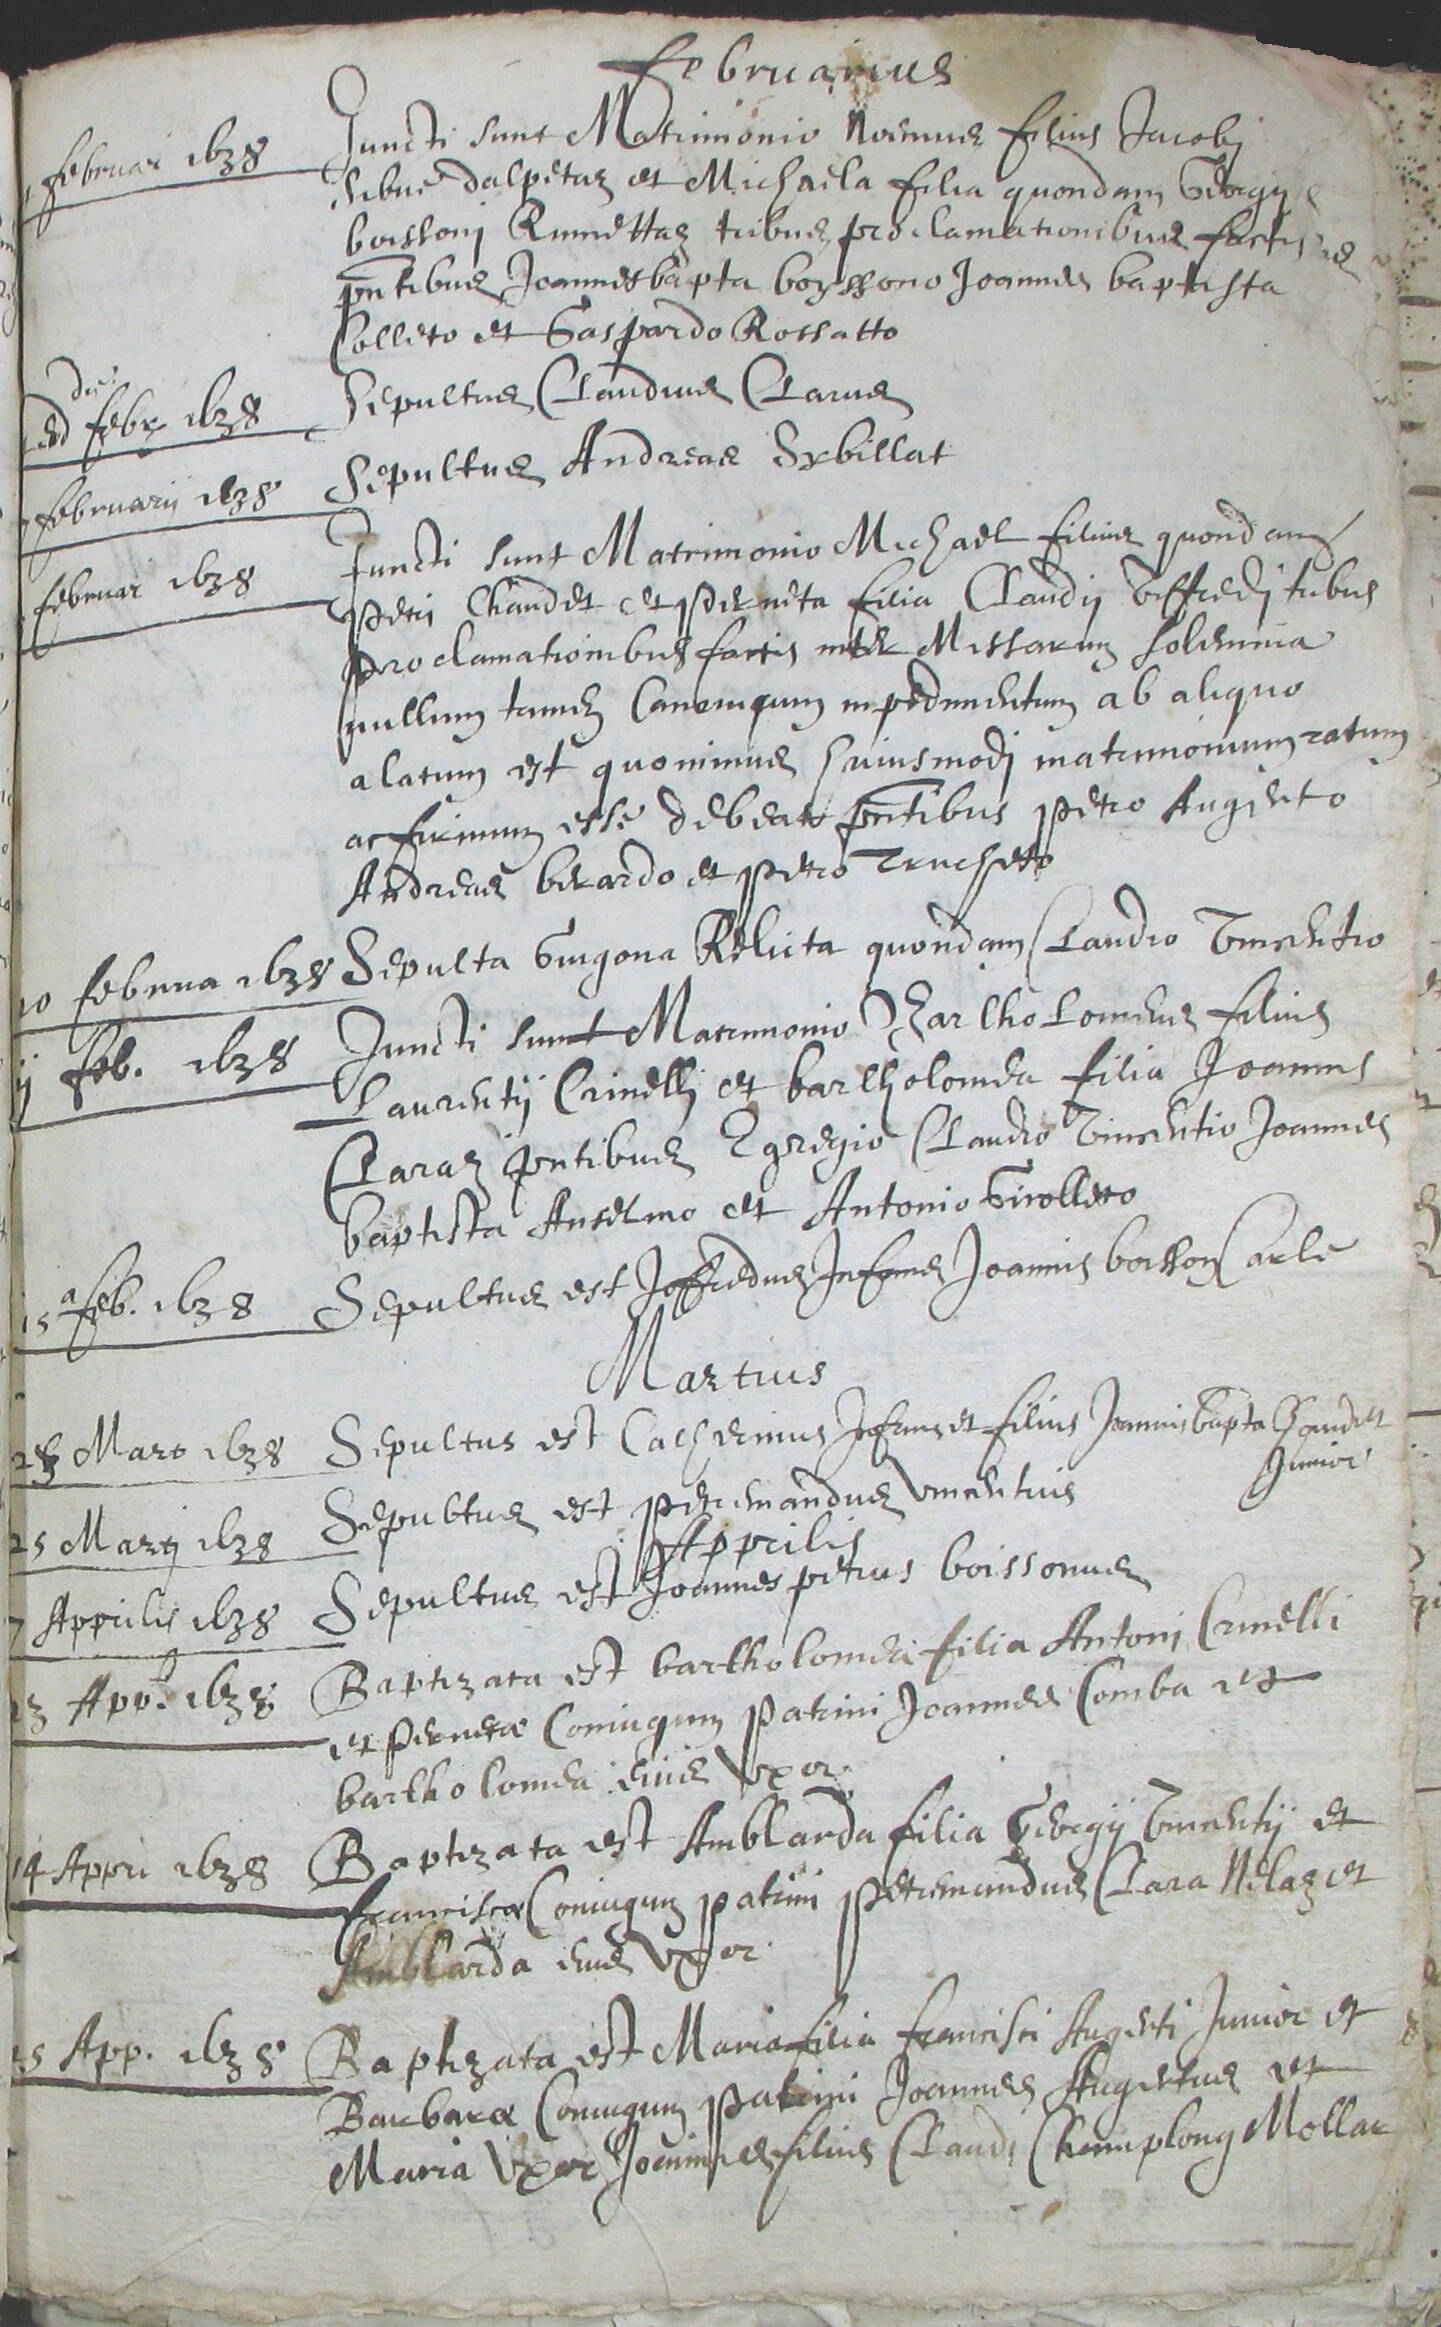 Februarius
Februar 1638
Juncti sunt Matrimonio filius Jacobj
dalpetaz et Michaela filia quondam Georgij
boissonj Rumettaz tribus proclamationibus factis
pntibus Joannesbapta boyssono Joannes baptista
Colleto et Gaspardo Rossatto
die
febr 1638
Sepultus Claudius Clarus
februarij 1638
Sepultus Andreas Sybillat
februar 1638
Juncti sunt Matrimonio Michael filius quondam
petri Chaudet et perneta filia Claudij Joffredj tribus
proclamationibus factis inter Missarum solemnia
nullum tamen Canonicum inpedimentum ab aliquo
alatum est quominus huiusmodj matrimonium ratum
ac firmum esse debeat pntibus petro Augerto
Andreas berardo et petro Trucheto
10 februa 1638
Sepulta Guigona Relicta quondam Claudio Vincentio
ij feb. 1638
Juncti sunt Matrimonio Bartholomeus filius
Laurentij Crinellj et bartholomea filia Joannis
Claraz pntibus Egregio Claudio Vincentio Joannes
baptista Anselmo et Antonio Girolleto
15 a feb. 1638
Sepultus est Joffredus Infans Joannis boisson Carle
Martius
Mart 1638
Sepultus est Catherinus Infans et filius Joannis bapta Chaudet
Junior
25 Martj 1638
Sepultus est petremandus vincentius
Apprilis
7 Apprilis 1638
Sepultus est Joannes petrus boissonus
13 App. 1638
Baptizata est bartholomea filia Antonj Crinelli
et pernetæ Coniugum patrini Joannes Comba et
bartholomea eius Vxor
14 Appri 1638
Baptizata est Amblarda filia Georgij Vincentij et
franciscæ Coniugum patrini petremandus Clara et
Amblarda eius Vxor
15 App. 1638
Baptizata est Maria filia francisci Augerti Junior et
Barbaræ Coniugum patrini Joannes Augertus et
Maria Vxor Joannes filius Claudi Champlong Mollar